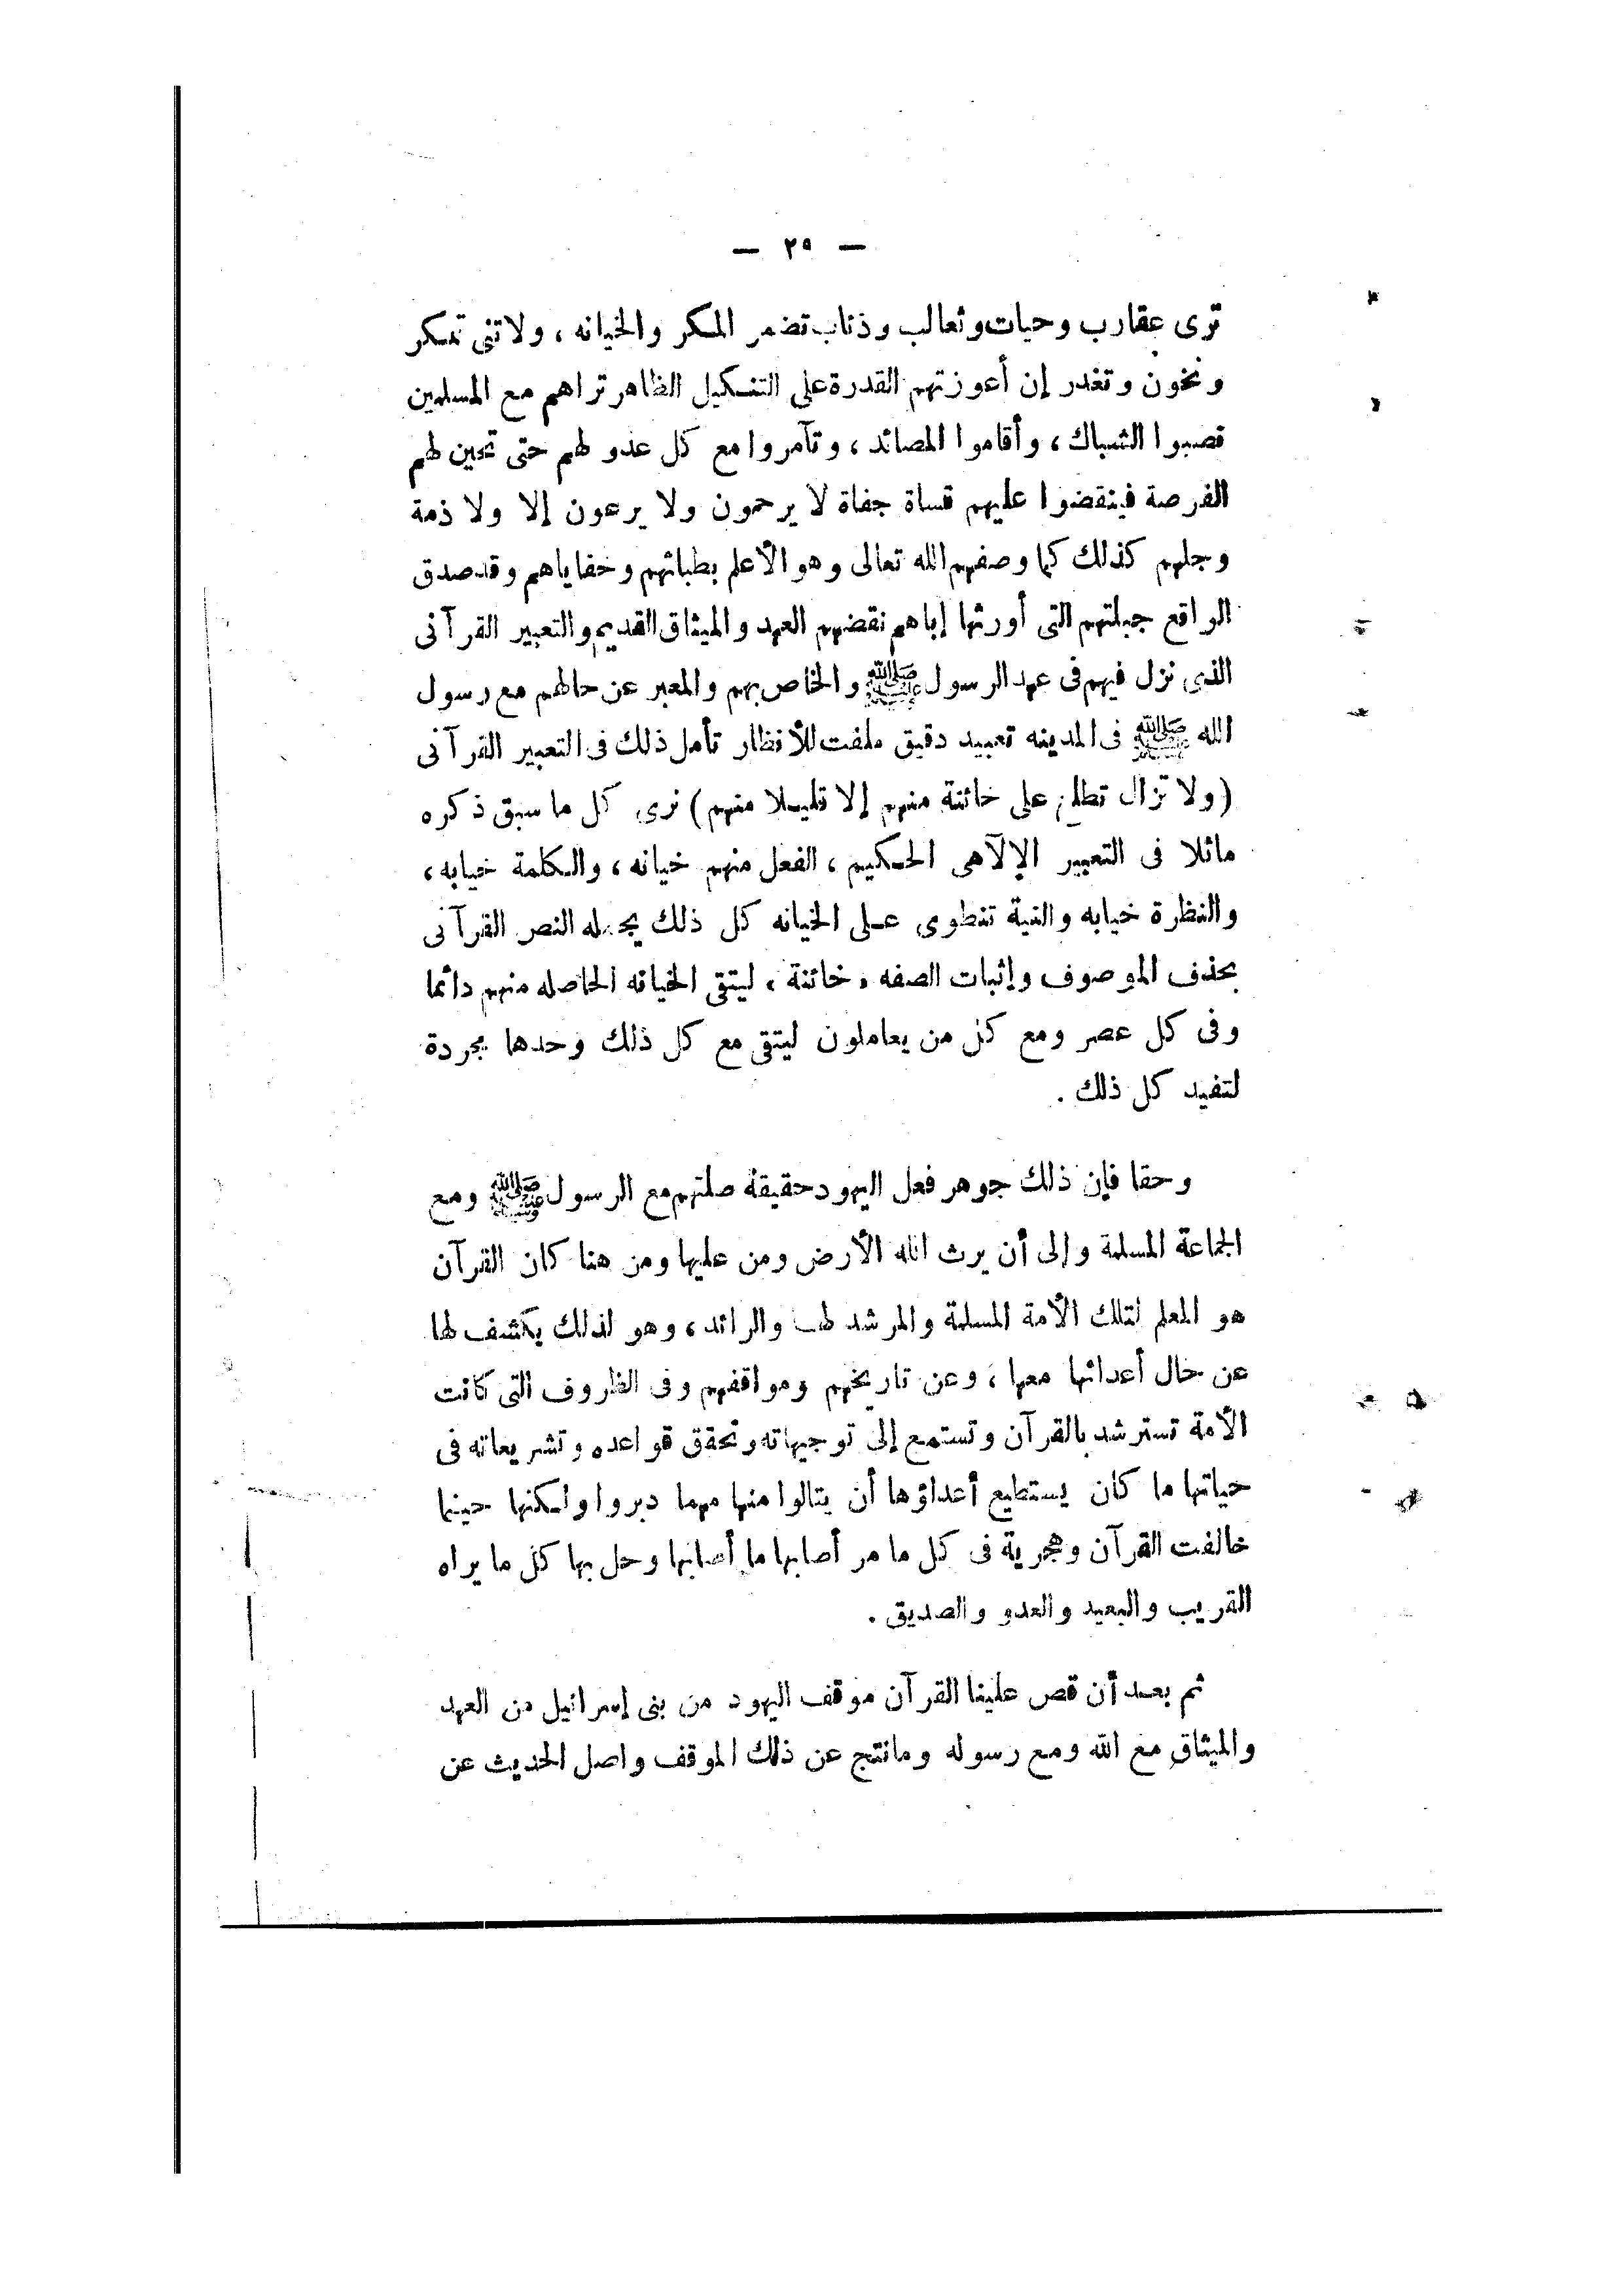 — ٢٩ —
ترى عقارب وحيات وثعالب وذئاب تضمر المكر والخيانه ، ولا تنى تمكر
وتخون وتغدر إن أعوزتهم القدرة على التنكيل الظاهر تراهم مع المسلمين
نصبوا الشباك ، وأقاموا المصائد ، وتآمروا مع كل عدو لهم حتى تحين لهم
الفرصة فينقضوا عليهم قساة جفاة لا يرحمون ولا يرعون إلا ولا ذمة
وجلهم كذلك كما وصفهم الله تعالى وهو الأعلم بطبائهم وخفاياهم وقد صدق
الواقع جبلتهم التى أورثها إياهم نقضهم العهد والميثاق القديم والتعبير القرآنى
الذى نزل فيهم فى عهد الرسول ﷺ والخاص بهم والمعبر عن حالهم مع رسول
الله ﷺ فى المدينه تعبيد دقيق ملفت للأنظار تأمل ذلك فى التعبير القرآنى
(ولا تزال تطلع على خائنة منهم إلا قليلا منهم) نرى كل ما سبق ذكره
ماثلا فى التعبير الإلآهى الحكيم ، الفعل منهم خيانه ، والكلمة خيابه ،
والنظرة خيابه والنية تنطوى على الخيانه كل ذلك يجمله النص القرآنى
بحذف الموصوف وإثبات الصفه ، خائنة ، ليتقى الخيانه الحاصله منهم دائما
وفى كل عصر ومع كل من يعاملون ليتقى مع كل ذلك وحدها مجردة
لتفيد كل ذلك .
وحقا فإن ذلك جوهر فعل اليهود حقيقة صلتهم مع الرسول ﷺ ومع
الجماعة المسلمة وإلى أن يرث الله الأرض ومن عليها ومن هنا كان القرآن
هو المعلم لتلك الأمة المسلمة والمرشد لها والرائد ، وهو لذلك يكشف لها
عن حال أعدائها معها ، وعن تاريخهم ومواقفهم وفى الظروف التى كانت
الأمة تسترشد بالقرآن وتستمع إلى توجيهاته وتحقق قواعده وتشريعاته فى
حياتها ما كان يستطيع أعداؤها أن ينالوا منها مهما دبروا ولكنها حينما
خالفت القرآن وهجرية فى كل ما مر أصابها ما أصابها وحل بها كل ما يراه
القريب والبعيد والعدو والصديق .
ثم بعد أن قص علينا القرآن موقف اليهود من بنى إسرائيل من العهد
والميثاق مع الله ومع رسوله ومانتج عن ذلك الموقف واصل الحديث عن